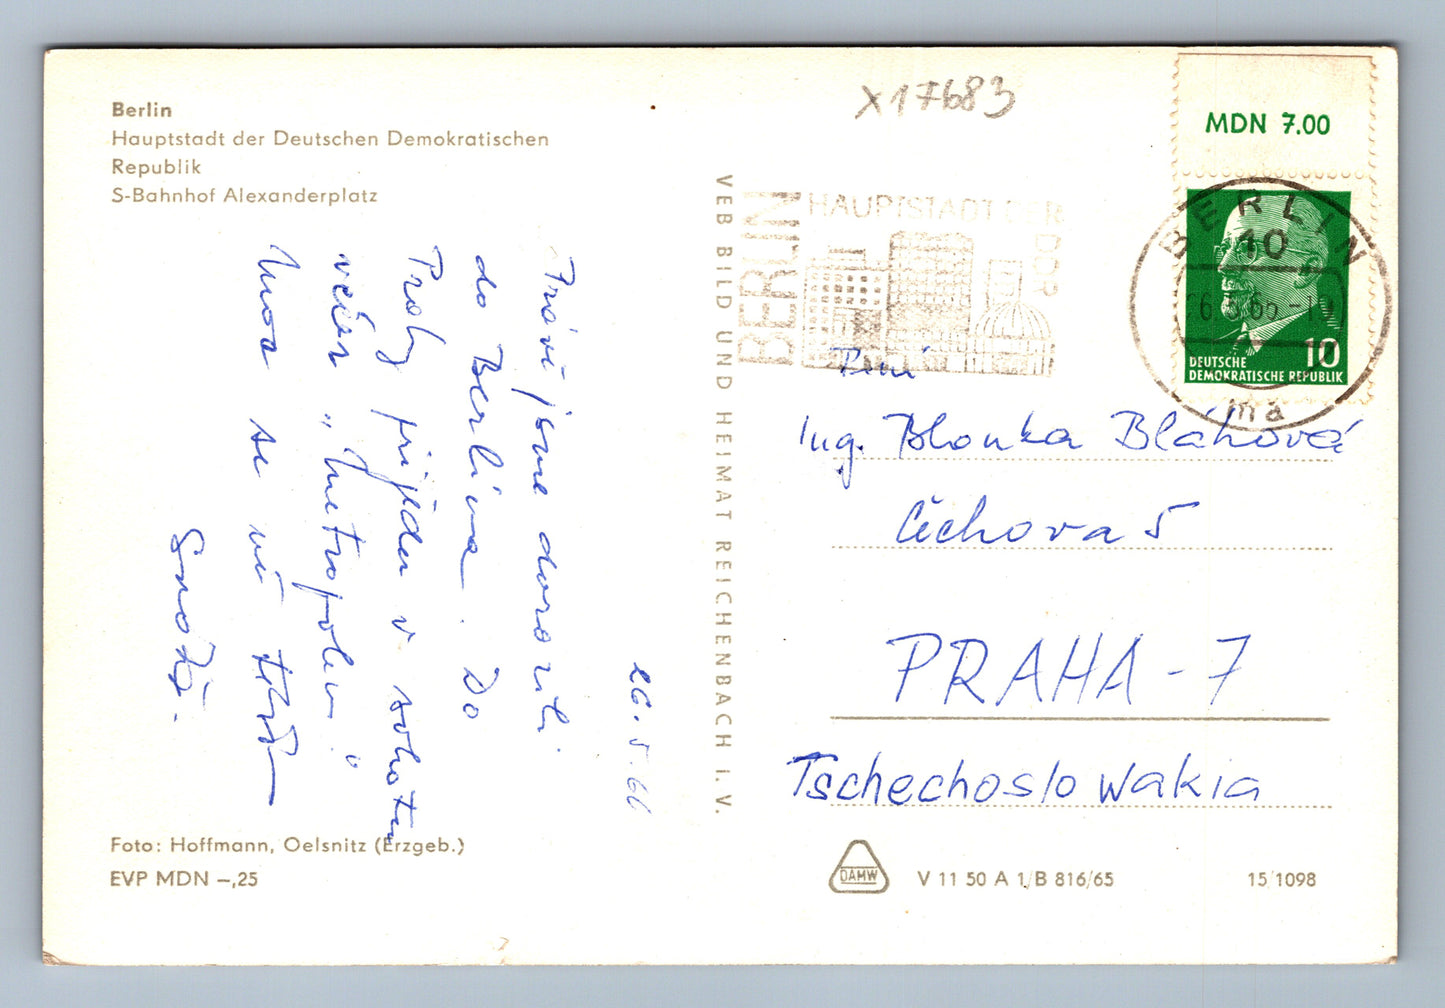 Berlin
Hauptstadt der Deutschen Demokratischen
Republik
S-Bahnhof Alexanderplatz
26. 5. 66
Právě jsme dorazili
do Berlína. Do
Prahy přijedu v sobotu
večer „Metropolem“
Moc se mi
Foto: Hoffmann, Oelsnitz (Erzgeb.)
EVP MDN –,25
VEB BILD UND HEIMAT REICHENBACH I. V.
X17683
MDN 7.00
BERLIN
HAUPTSTADT DER
DDR
BERLIN
10
ma
10
DEUTSCHE
DEMOKRATISCHE REPUBLIK
Paní
Ing. Blanka Bláhová
Čechova 5
PRAHA - 7
Tschechoslowakia
DAMW
V 11 50 A 1/B 816/65
15/1098